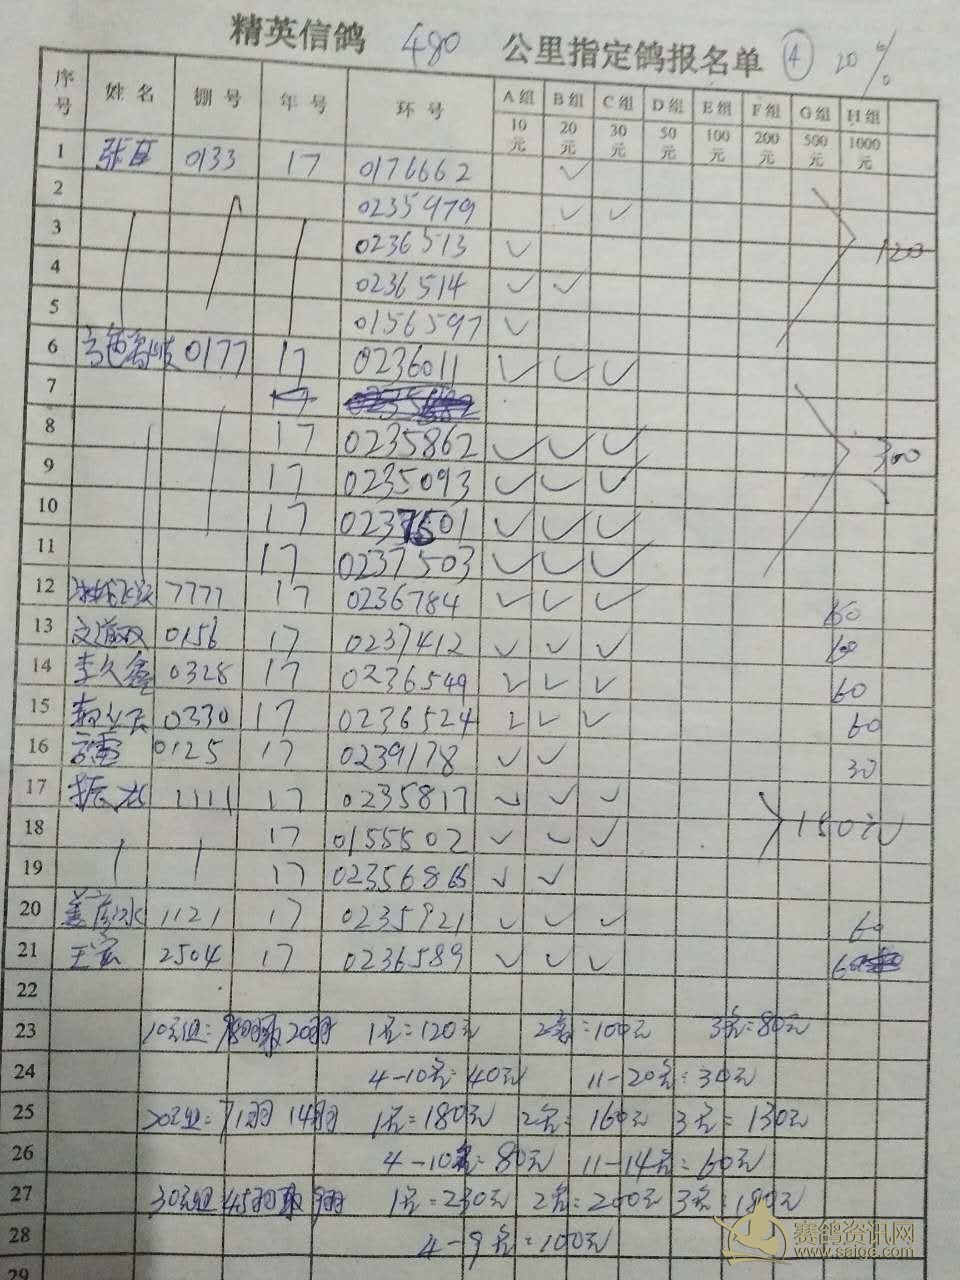 精英信鸽 480 公里指定鸽报名单 ④ 20%
序号 姓名 棚号 年号 环号 A组 B组 C组 D组 E组 F组 G组 H组
10元 20元 30元 50元 100元 200元 500元 1000元
1 0133 17 0176662 ✓
2 0235979 ✓ ✓
3 0236513 ✓ 120
4 0236514 ✓ ✓
5 0156597 ✓
6 0177 17 0236011 ✓ ✓ ✓
7 17
8 17 0235862 ✓ ✓ ✓ 300
9 17 0235093 ✓ ✓ ✓
10 17 ✓ ✓ ✓
11 17 0237503 ✓ ✓ ✓
12 7777 17 0236784 ✓ ✓ ✓ 60
13 0156 17 0237412 ✓ ✓ ✓ 60
14 李久鑫 0328 17 0236549 ✓ ✓ ✓ 60
15 0330 17 0236524 ✓ ✓ ✓ 60
16 0125 17 0239178 ✓ ✓ 30
17 1111 17 0235817 ✓ ✓ ✓
18 17 0155502 ✓ ✓ ✓ 150元
19 17 ✓ ✓
20 1121 17 0235921 ✓ ✓ ✓ 60
21 2504 17 0236589 ✓ ✓ ✓
22
23 10元组: 20羽 1名=120元 2名=100元 3名=80元
24 4-10名=40元 11-20名=30元
25 20元组: 71羽 14羽 1名=180元 2名=160元 3名=130元
26 4-10名=80元 11-14名=60元
27 30元组 45羽取9羽 1名=230元 2名=200元 3名=180元
28 4-9名=100元
29
赛鸽资讯网
www.saige.com